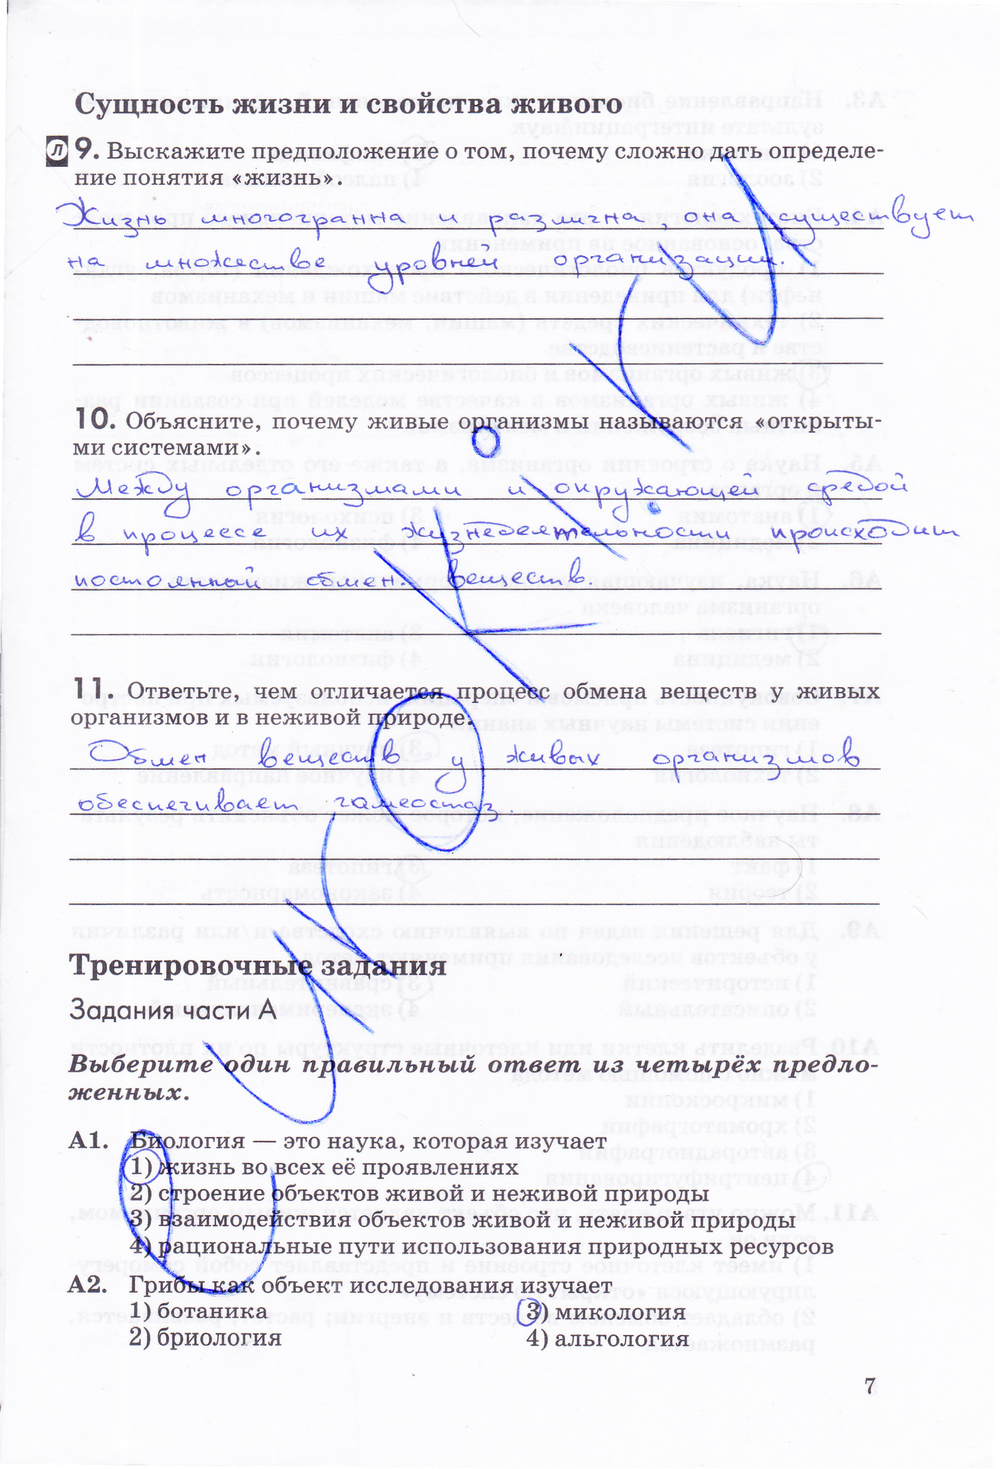 Сущность жизни и свойства живого
Л 9. Выскажите предположение о том, почему сложно дать определе-
ние понятия «жизнь».
Жизнь многогранна и различна, она существует
на множестве уровней организации.
10. Объясните, почему живые организмы называются «открыты-
ми системами».
Между организмами и окружающей средой
в процессе их жизнедеятельности происходит
постоянный обмен веществ.
11. Ответьте, чем отличается процесс обмена веществ у живых
организмов и в неживой природе.
Обмен веществ у живых организмов
обеспечивает гомеостаз.
Тренировочные задания
Задания части А
Выберите один правильный ответ из четырёх предло-
женных.
А1. Биология — это наука, которая изучает
1) жизнь во всех её проявлениях
2) строение объектов живой и неживой природы
3) взаимодействия объектов живой и неживой природы
4) рациональные пути использования природных ресурсов
А2. Грибы как объект исследования изучает
1) ботаника
2) бриология
3) микология
4) альгология
7